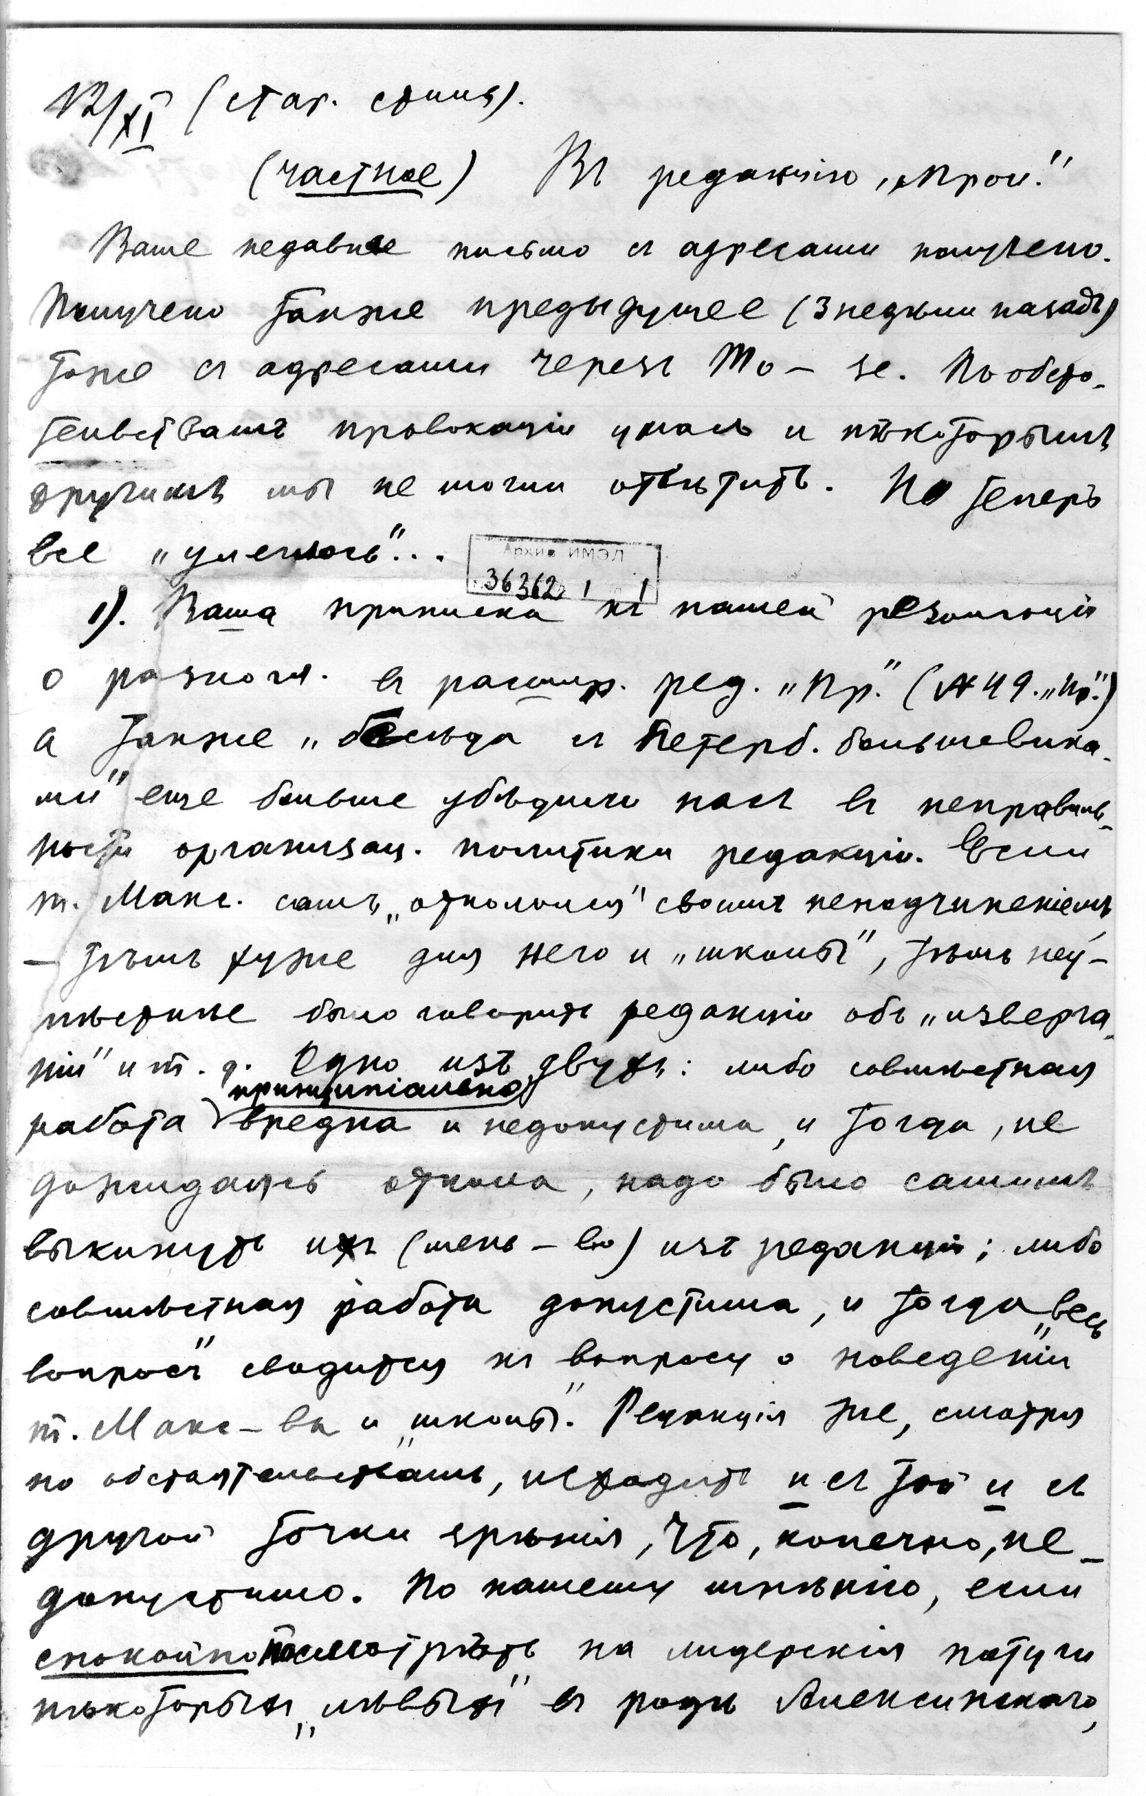 12/XI (стар. стиль).
(частное) Въ редакцію „Прол."
Ваше недавнее письмо съ адресами получено.
Получено также предыдущее (3 недѣли назадъ)
тоже съ адресами черезъ Th–se. По обсто-
тельствамъ провокаціи у насъ и нѣкоторымъ
другимъ мы не могли отвѣтить. Но теперь
все „улеглось"...
Архив ИМЭЛ
36362 1 1
1). Ваша приписка къ нашей резолюціи
о разногл. въ расшир. ред. „Пр." (№ 49. „Пр.")
а также „бесѣда съ Петерб. большевика-
ми" еще больше убѣдили насъ въ неправиль-
ности организац. политики редакціи. Если
т. Макс. самъ „откололся" своимъ неподчиненіемъ
– тѣмъ хуже для него и „школы", тѣмъ неу-
мѣстнѣе было говорить редакціи объ „изверга-
ніи" и т. д. Одно изъ двухъ: либо совмѣстная
принципіально
работа вредна и недопустима, и тогда, не
дожидаясь откола, надо было самимъ
выкинуть ихъ (мень–во) изъ редакціи; либо
совмѣстная работа допустима, и тогда „весь
вопросъ" сводится къ вопросу о поведеніи
т. Макс–ва и „школы". Редакція же, смотря
по обстоятельствамъ, исходитъ и съ той и съ
другой точки зрѣнія, что, конечно, не-
допустимо. По нашему мнѣнію, если
спокойно посмотрѣть на лидерскія потуги
нѣкоторыхъ „лѣвыхъ" въ родѣ Алексинскаго,